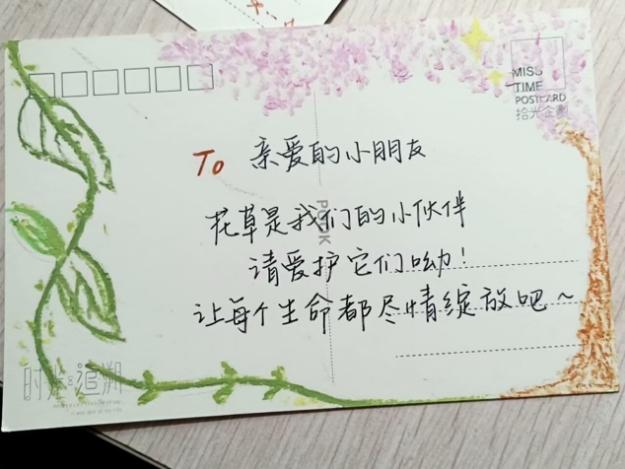 MISS
TIME
POSTCARD
拾光企劃
To 亲爱的小朋友
花草是我们的小伙伴
请爱护它们呦!
让每个生命都尽情绽放吧~
时光追溯